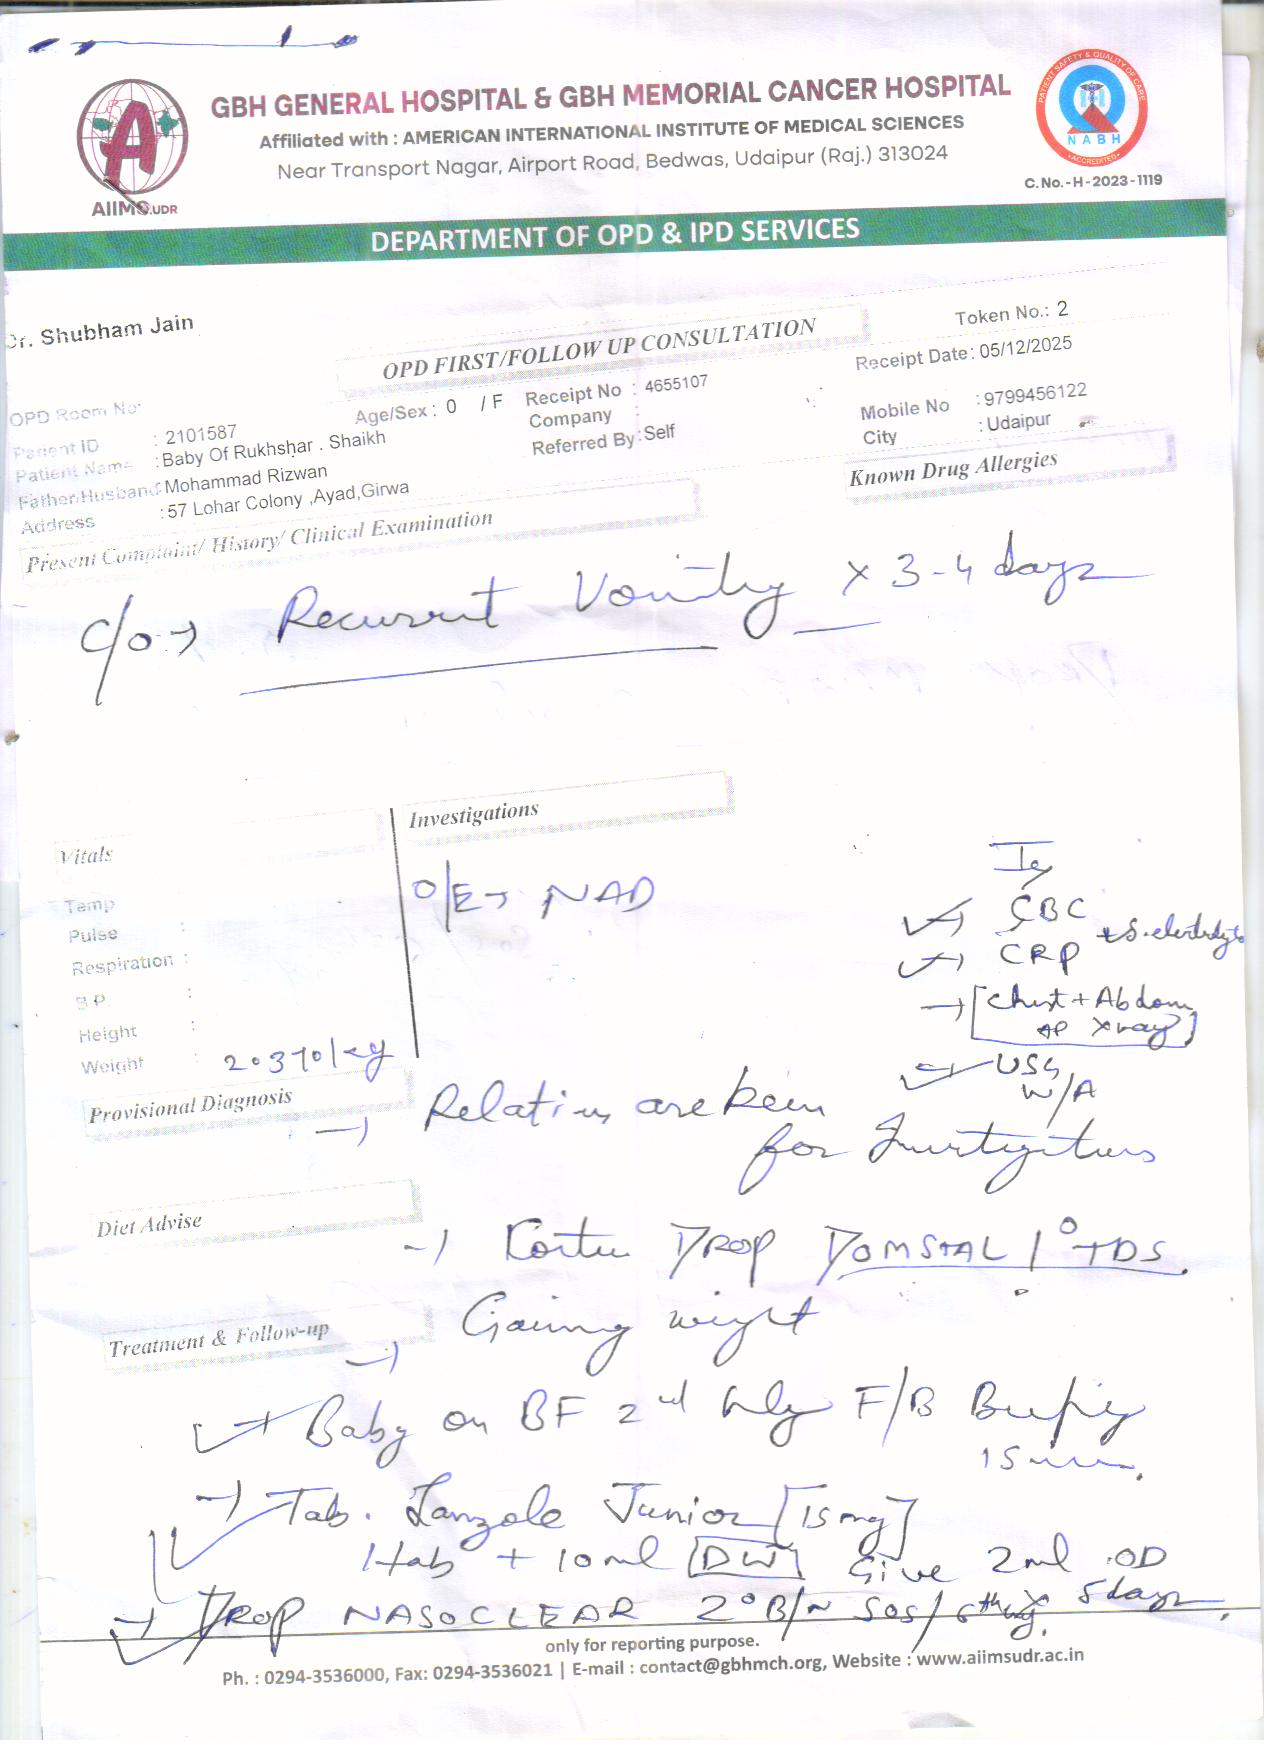 GBH GENERAL HOSPITAL & GBH MEMORIAL CANCER HOSPITAL
Affiliated with : AMERICAN INTERNATIONAL INSTITUTE OF MEDICAL SCIENCES
Near Transport Nagar, Airport Road, Bedwas, Udaipur (Raj.) 313024
AIIMS.UDR
PATIENT SAFETY & QUALITY OF CARE
NABH
ACCREDITED
C.No.-H-2023-1119
DEPARTMENT OF OPD & IPD SERVICES
Dr. Shubham Jain
OPD FIRST/FOLLOW UP CONSULTATION
Token No.: 2
Receipt Date: 05/12/2025
OPD Room No:
Age/Sex : 0 / F
Receipt No : 4655107
Mobile No : 9799456122
Patient ID : 2101587
Company :
City : Udaipur
Patient Name : Baby Of Rukhshar . Shaikh
Referred By : Self
Father/Husband : Mohammad Rizwan
Known Drug Allergies
Address : 57 Lohar Colony ,Ayad,Girwa
Present Complaint/ History/ Clinical Examination
C/o → Recurrent Vomiting x 3-4 days
Investigations
Vitals
O/E → NAD
Temp
Pulse :
Respiration :
B.P. :
Height :
Weight : 2.370 kg
→ CBC + S. electrolyte
→ CRP
→ [Chest + Abdom
AP Xray]
→ USG
W/A
Provisional Diagnosis
→ Relatives are keen
for Investigations
Diet Advise
→ DROP DOMSTAL 1° TDS.
Treatment & Follow-up
→ Gaining weight
→ Baby on BF 2nd hrly F/B Burping
15 min.
→ Tab. Lanzole Junior [15 mg]
1 tab + 10 ml [DW] Give 2ml OD
→ DROP NASOCLEAR 2° B/N SOS/ 6thrly x 5 days
only for reporting purpose.
Ph. : 0294-3536000, Fax: 0294-3536021 | E-mail : contact@gbhmch.org, Website : www.aiimsudr.ac.in